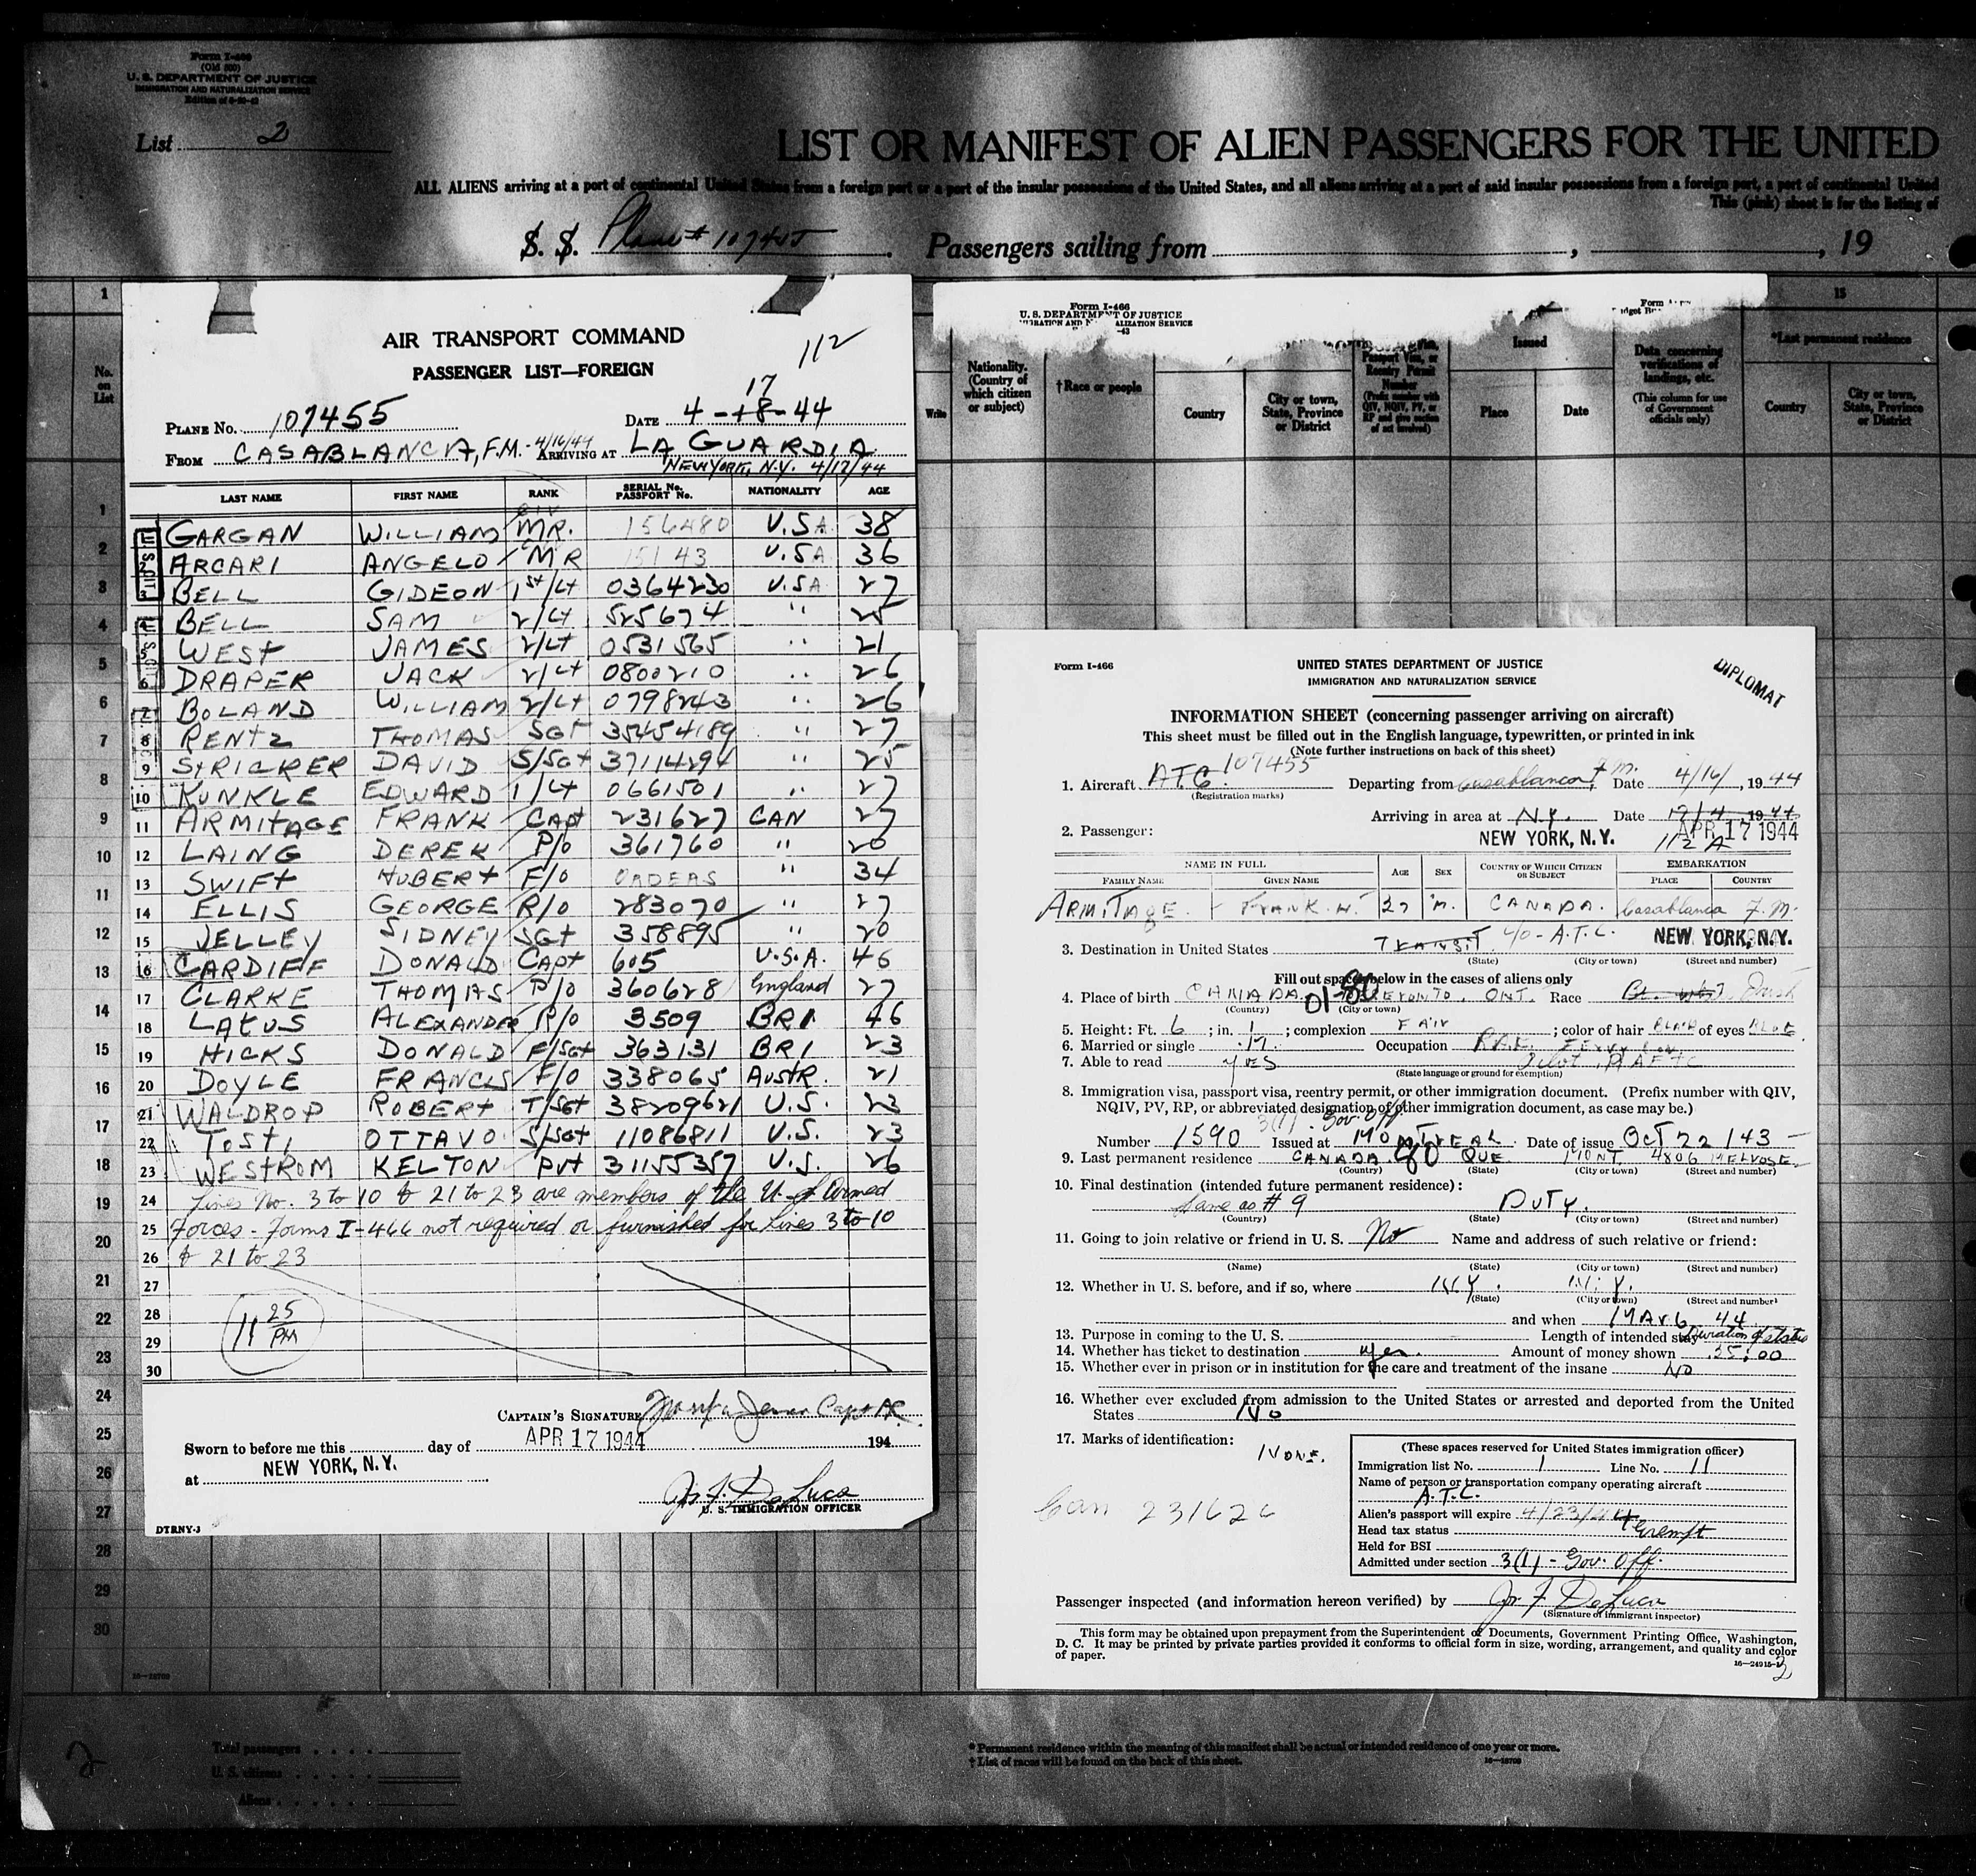 Form I-466
(Old 500)
U. S. DEPARTMENT OF JUSTICE
IMMIGRATION AND NATURALIZATION SERVICE
List 2
LIST OR MANIFEST OF ALIEN PASSENGERS FOR THE UNITED
ALL ALIENS arriving at a port of continental United States from a foreign port or a port of the insular possessions of the United States, and all aliens arriving at a port of said insular possessions from a foreign port, a port of continental United
This (pink) sheet is for the listing of
S. S. Plane # 107455 . Passengers sailing from , , 19
AIR TRANSPORT COMMAND
112
PASSENGER LIST—FOREIGN
17
PLANE No. 107455 DATE 4-18-44
FROM CASABLANCA, F.M. - 4/16/44 ARRIVING AT LA GUARDIA
NEW YORK, N.Y. 4/17/44
LAST NAME FIRST NAME RANK SERIAL No. PASSPORT No. NATIONALITY AGE
GARGAN WILLIAM MR. 156480 U.S.A. 38
ARCARI ANGELO MR 15143 U.S.A 36
3 BELL GIDEON 1st/Lt 0364230 U.SA 27
4 BELL SAM 2/Lt 525674 " 25
5 WEST JAMES 2/Lt 0531565 " 21
6 DRAPER JACK 2/Lt 0800210 " 26
7 BOLAND WILLIAM 2/Lt 0798243 " 26
8 RENTZ THOMAS SGT 35454189 " 27
9 STRICKER DAVID S/SGt 37114294 " 25
10 KUNKLE EDWARD 1/Lt 0661501 " 27
11 ARMITAGE FRANK Capt 231627 CAN 27
12 LAING DEREK P/o 361760 " 20
13 SWIFT HUBERT F/o ORDEAS " 34
14 ELLIS GEORGE R/o 283070 " 27
15 JELLEY SIDNEY SGt 358895 " 20
16 CARDIFF DONALD Capt 605 U.S.A. 46
17 CLARKE THOMAS P/o 360628 England 27
18 LATUS ALEXANDER P/o 3509 BRI 46
19 HICKS DONALD F/SGt 363131 BRI 23
20 DOYLE FRANCIS F/O 338065 AUSTR. 21
21 WALDROP ROBERT T/SGt 38209621 U.S. 23
22 TOSTI OTTAVO S/SGt 11086811 U.S. 23
23 WESTROM KELTON Pvt 31155357 U.S. 26
24 Lines No. 3 to 10 & 21 to 23 are members of the U.S. Armed
25 Forces - Forms I-466 not required or furnished for lines 3 to 10
26 & 21 to 23
27
28
29
30
11 25 PM
CAPTAIN'S SIGNATURE
Sworn to before me this day of APR 17 1944 194
at NEW YORK, N.Y.
Jos. F. DeLuca
U. S. IMMIGRATION OFFICER
DTRNY-3
Form I-466
U. S. DEPARTMENT OF JUSTICE
No. on List
Write
Nationality. (Country of which citizen or subject)
†Race or people
Country
City or town, State, Province or District
Issued
Place
Date
Data concerning verifications of landings, etc.
(This column for use of Government officials only)
15
*Last permanent residence
Country
City or town, State, Province or District
Form I-466
UNITED STATES DEPARTMENT OF JUSTICE
IMMIGRATION AND NATURALIZATION SERVICE
DIPLOMAT
INFORMATION SHEET (concerning passenger arriving on aircraft)
This sheet must be filled out in the English language, typewritten, or printed in ink
(Note further instructions on back of this sheet)
1. Aircraft A.T.C. 107455 Departing from Casablanca, F.M. Date 4/16/, 1944
(Registration marks)
Arriving in area at N.Y. Date 17/4 1944
2. Passenger: NEW YORK, N.Y. APR 17 1944
112 A
NAME IN FULL AGE SEX COUNTRY OF WHICH CITIZEN OR SUBJECT EMBARKATION
FAMILY NAME GIVEN NAME PLACE COUNTRY
ARMITAGE. FRANK. H. 27 M. CANADA. Casablanca F.M.
3. Destination in United States TRANSIT c/o - A.T.C. NEW YORK, N.Y.
(State) (City or town) (Street and number)
Fill out spaces below in the cases of aliens only
4. Place of birth CANADA. 01-80 TORONTO. ONT. Race Irish
(Country) (City or town)
5. Height: Ft. 6; in. 1; complexion FAIR; color of hair BLACK of eyes BLUE
6. Married or single M. Occupation
7. Able to read yes Pilot RAFTC
(State language or ground for exemption)
8. Immigration visa, passport visa, reentry permit, or other immigration document. (Prefix number with QIV,
NQIV, PV, RP, or abbreviated designation of other immigration document, as case may be.)
3(1) Gov. Off.
Number 1590 Issued at MONTREAL Date of issue OCT 22/43
9. Last permanent residence CANADA. 80 QUE MONT. 4806 MELROSE.
(Country) (State) (City or town) (Street and number)
10. Final destination (intended future permanent residence):
Same as # 9 DUTY.
(Country) (State) (City or town) (Street and number)
11. Going to join relative or friend in U. S. No Name and address of such relative or friend:
(Name) (State) (City or town) (Street and number)
12. Whether in U. S. before, and if so, where N.Y. N.Y.
(State) (City or town) (Street and number)
and when MAR 6 44
13. Purpose in coming to the U. S. Length of intended stay Duration of status
14. Whether has ticket to destination yes. Amount of money shown 35.00
15. Whether ever in prison or in institution for the care and treatment of the insane NO
16. Whether ever excluded from admission to the United States or arrested and deported from the United
States NO
17. Marks of identification: NONE.
Can 231626
(These spaces reserved for United States immigration officer)
Immigration list No. 1 Line No. 11
Name of person or transportation company operating aircraft
A.T.C.
Alien's passport will expire 4/23/44
Head tax status Exempt
Held for BSI
Admitted under section 3(1) - Gov. Off.
Passenger inspected (and information hereon verified) by Jos. F. DeLuca
(Signature of immigrant inspector)
This form may be obtained upon prepayment from the Superintendent of Documents, Government Printing Office, Washington,
D. C. It may be printed by private parties provided it conforms to official form in size, wording, arrangement, and quality and color
of paper.
2
Total passengers
U. S. citizens
Aliens
* Permanent residence within the meaning of this manifest shall be actual or intended residence of one year or more.
† List of races will be found on the back of this sheet.
2